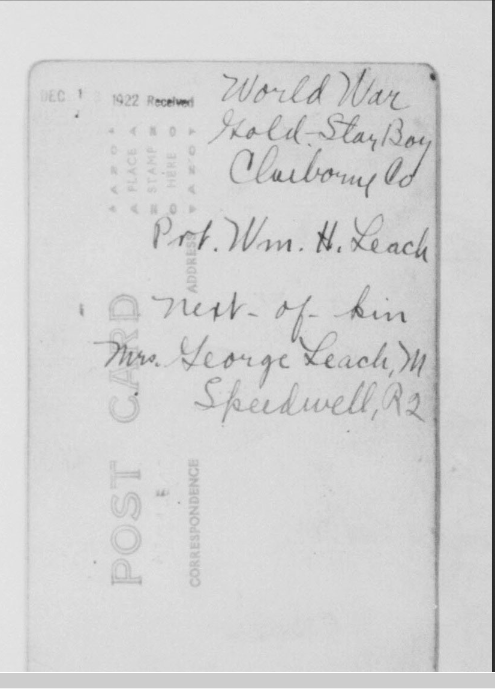 DEC 1 1922 Received
World War
Gold-Star Boy
Claiborne Co
Pvt. Wm. H. Leach
next-of-kin
Mrs. George Leach, M
Speedwell, R2
PLACE
STAMP
HERE
POST CARD
ADDRESS
CORRESPONDENCE